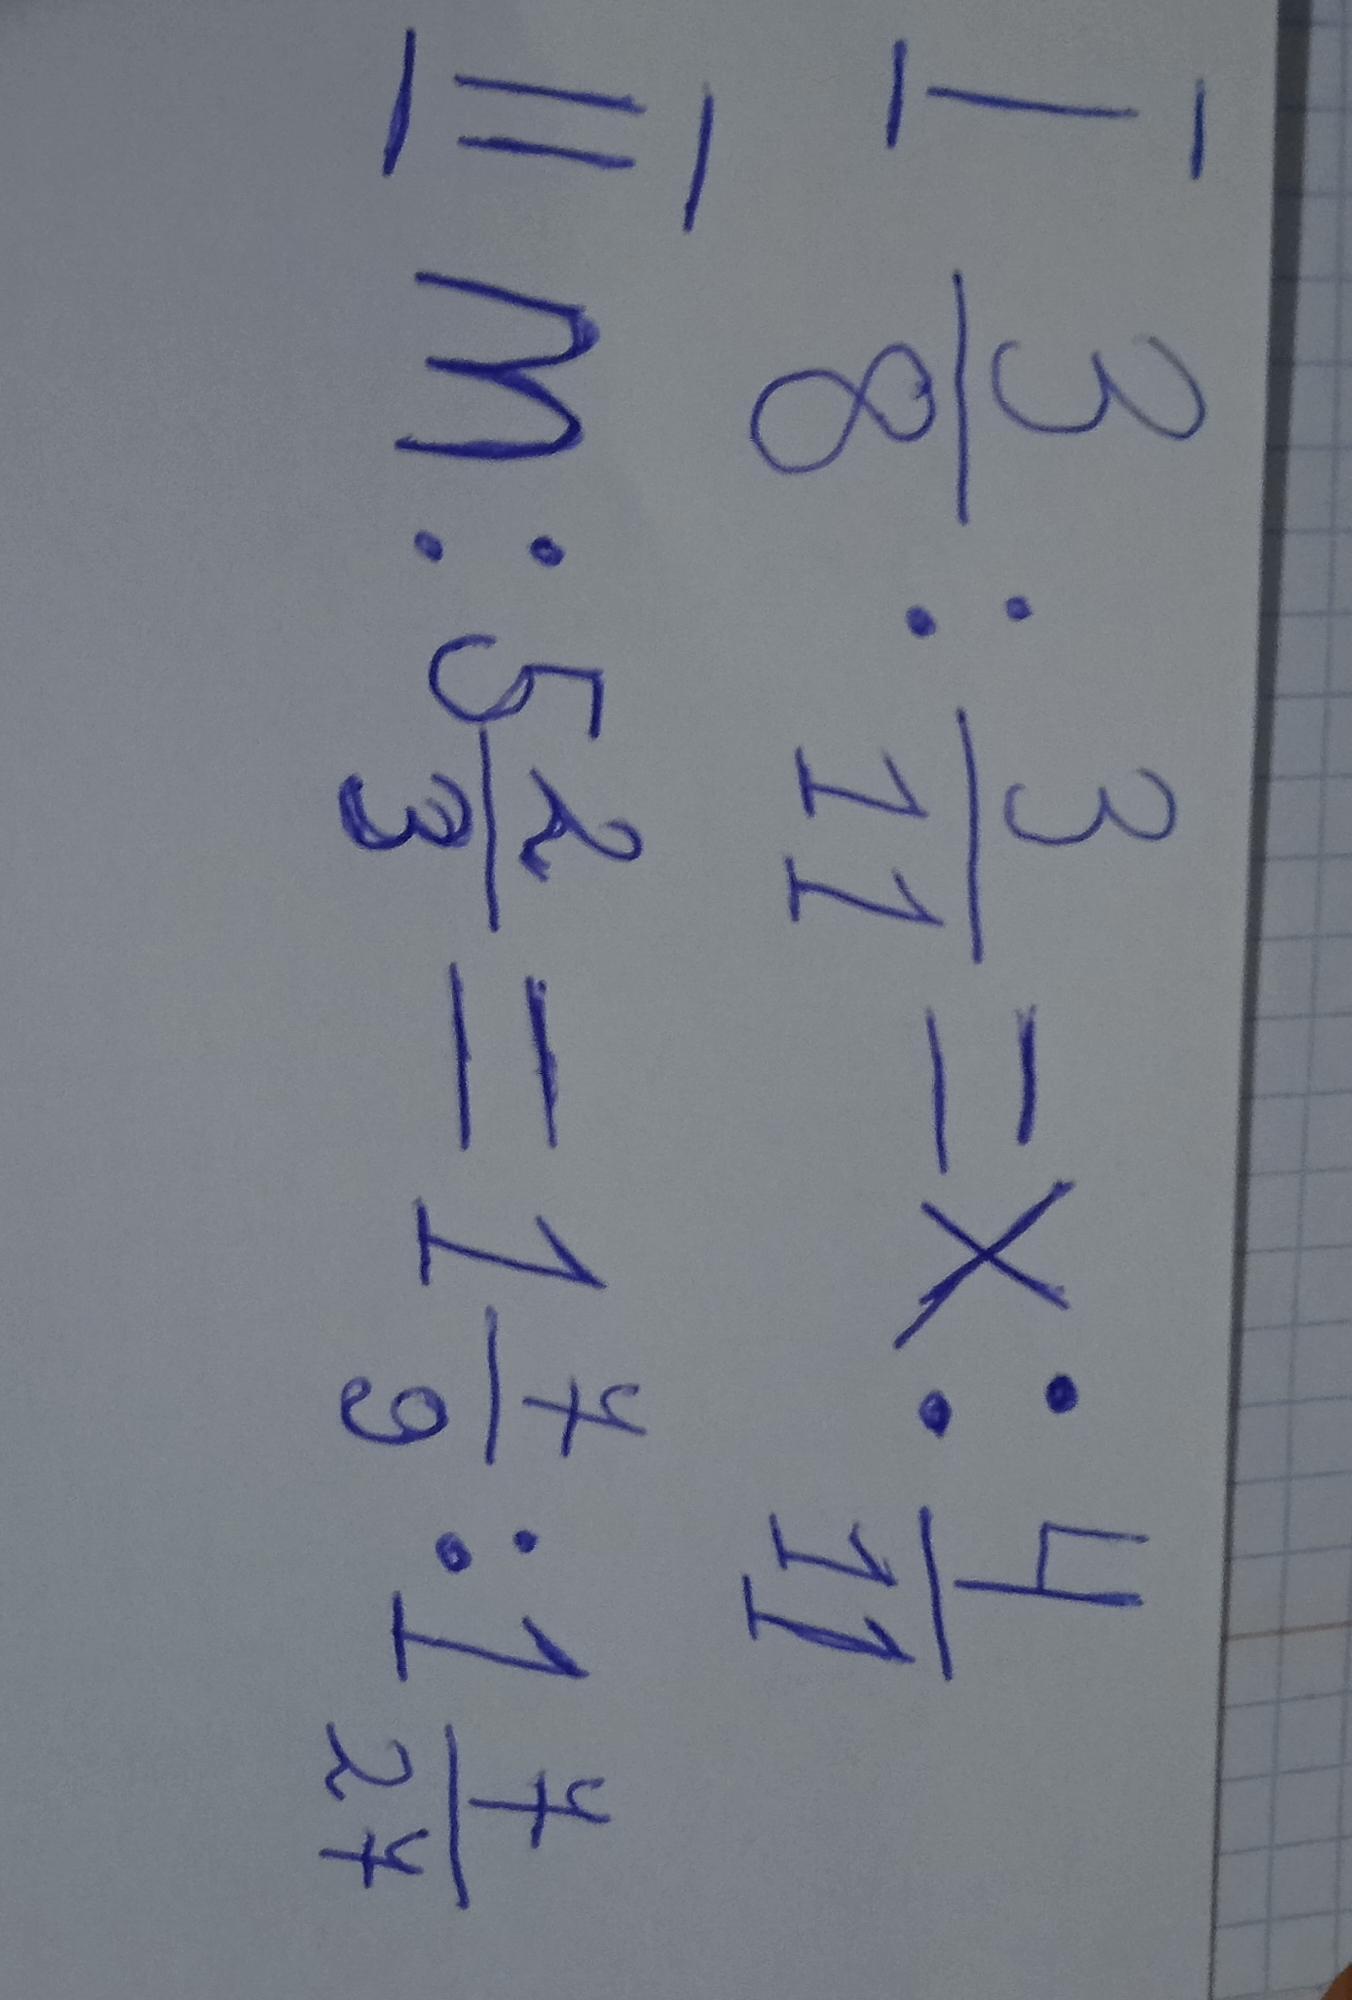 I 3/8 : 3/11 = x : 4/11
II m : 5 2/3 = 1 7/9 : 1 7/27